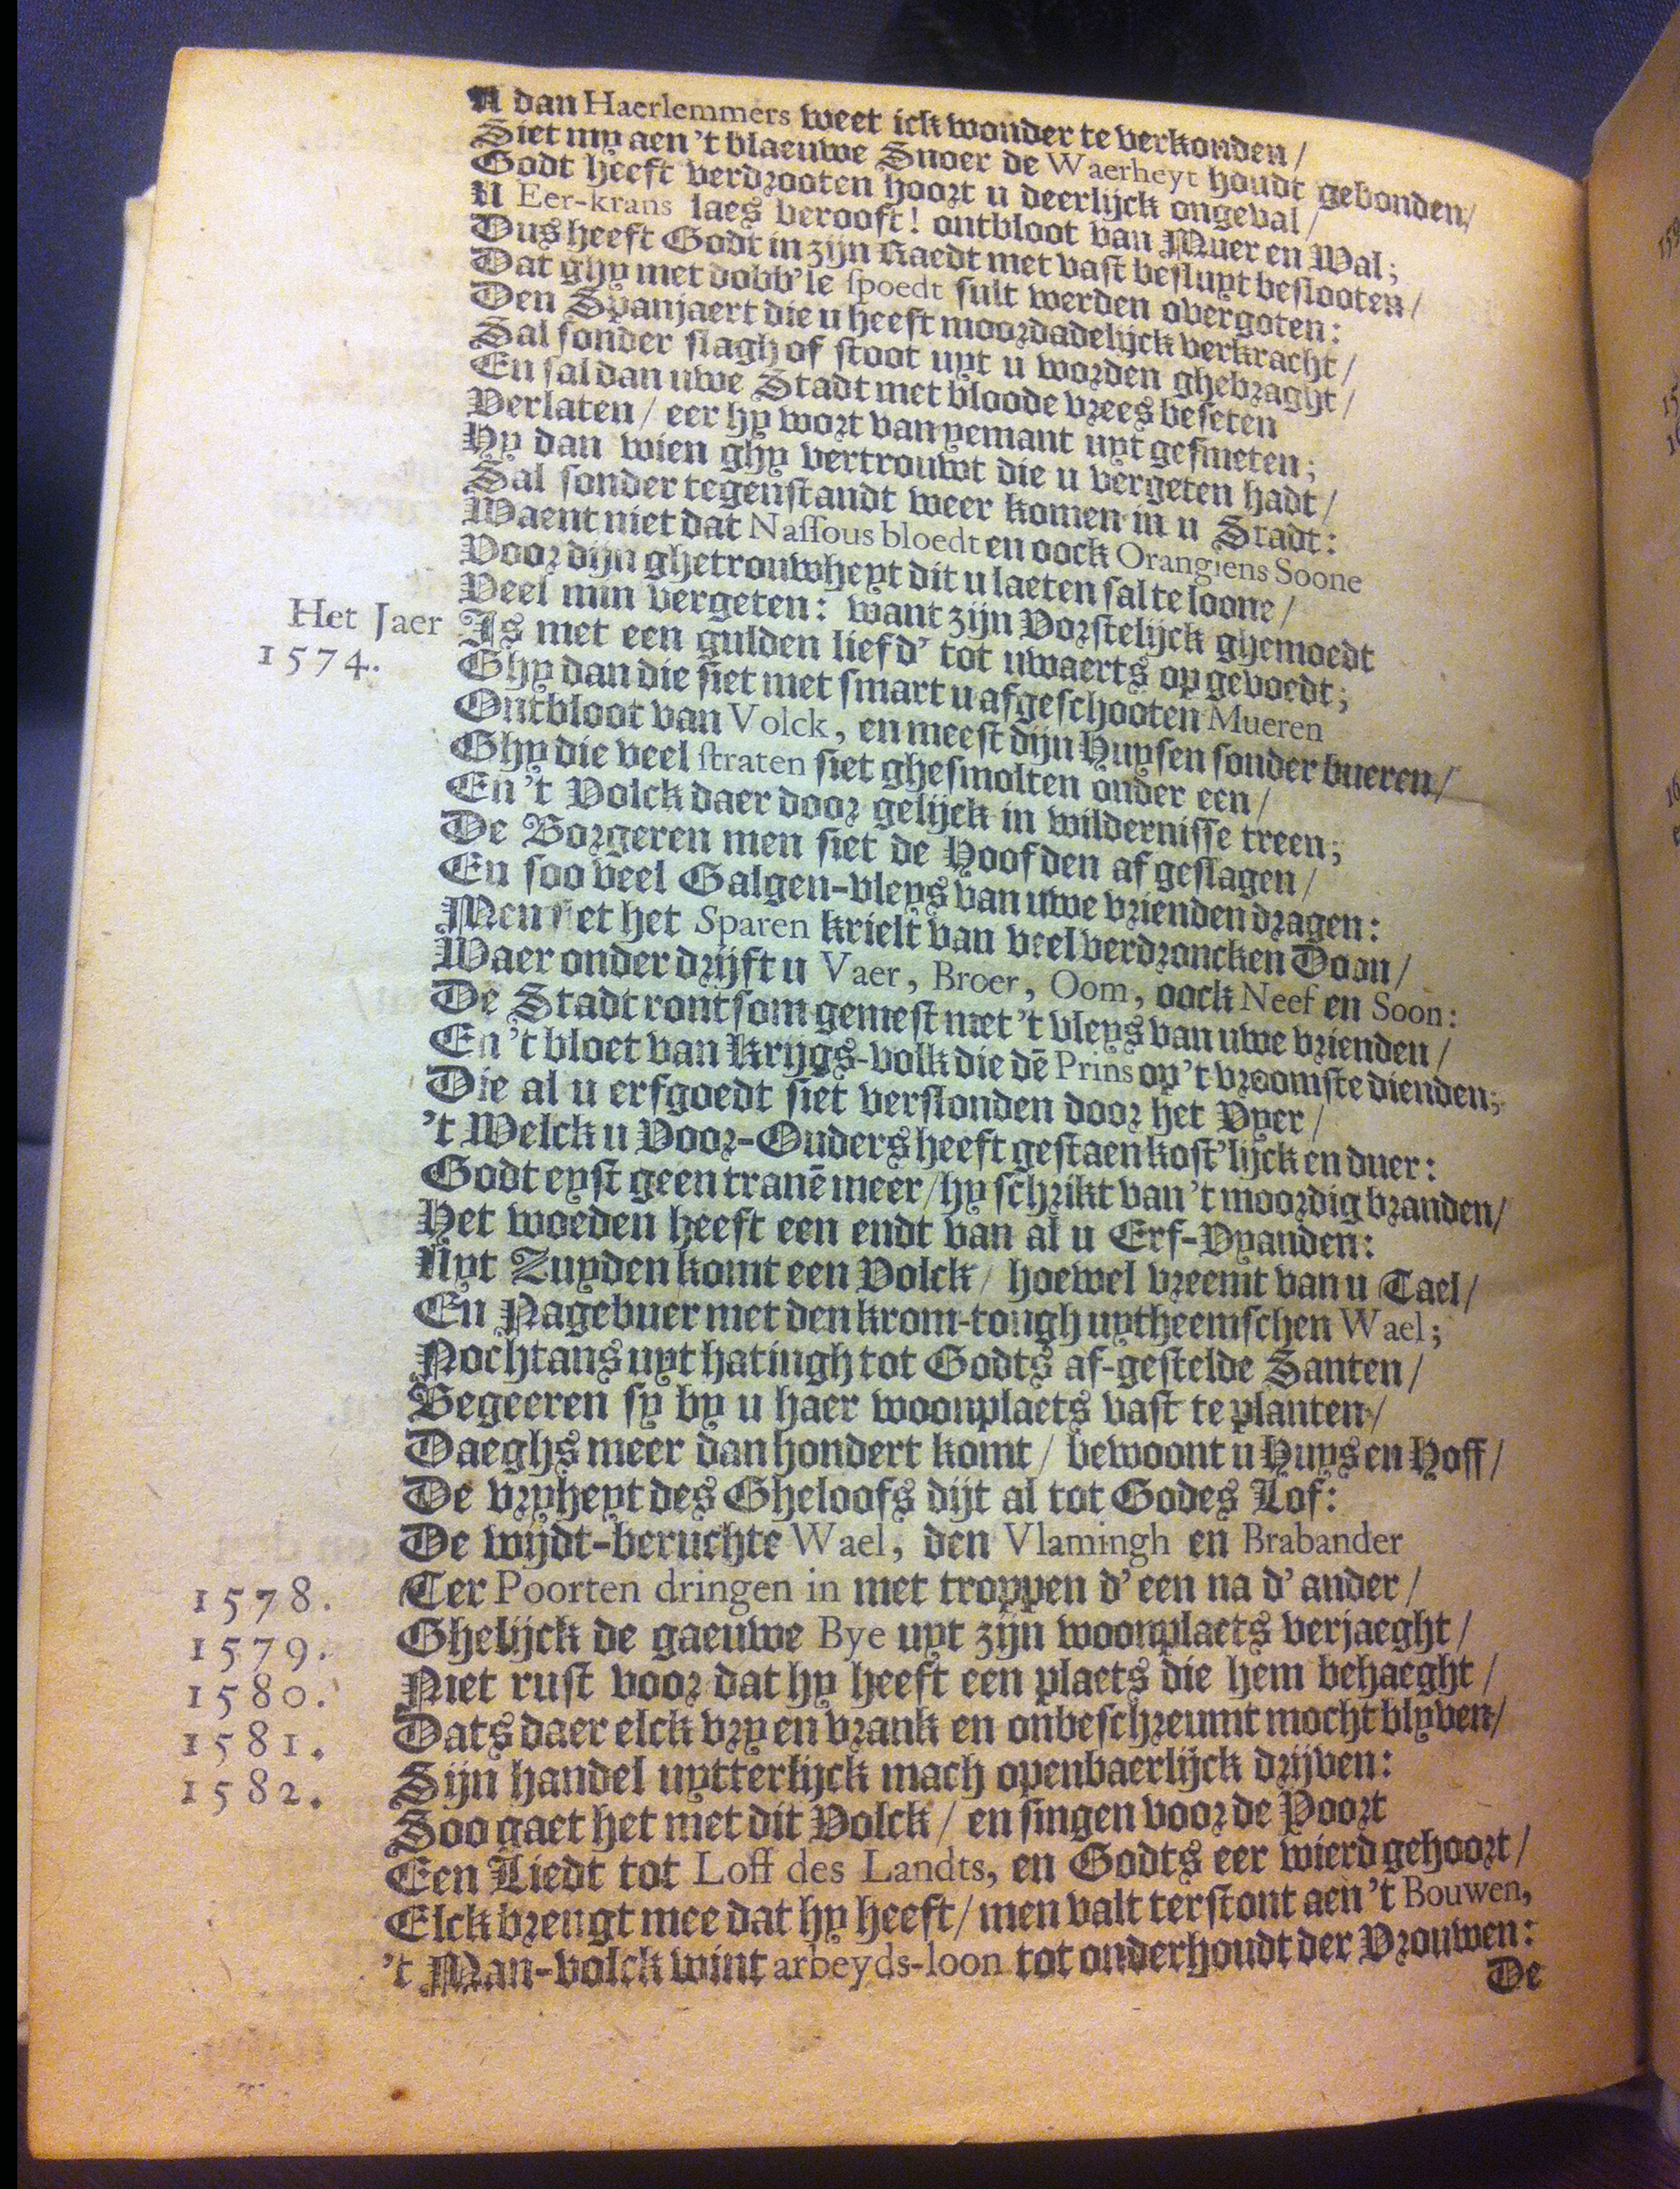 U dan Haerlemmers weet ick wonder te verkonden /
Siet my aen 't blaeuwe Snoer de Waerheyt houdt gebonden /
Godt heeft verdrooten hoort u deerlijck ongeval /
U Eer-krans laes berooft! ontbloot van Muer en Wal;
Dus heeft Godt in zijn Raedt met vast besluyt beslooten /
Dat ghy met dobb'le spoedt sult werden overgoten:
Den Spanjaert die u heeft moordadelijck verkracht /
Sal sonder slagh of stoot uyt u worden ghebraght /
En sal dan uwe Stadt met bloode vrees beseten
Verlaten / eer hy wort van yemant uyt gesmeten;
Hy dan wien ghy vertrouwt die u vergeten hadt /
Sal sonder tegenstandt weer komen in u Stadt:
Waent niet dat Nassous bloedt en oock Orangiens Soone
Voor dijn ghetrouwheyt dit u laeten sal te loone /
Veel min vergeten: want zijn Vorstelijck ghemoedt
Het Jaer 1574.
Is met een gulden liefd' tot uwaerts op gevoedt;
Ghy dan die siet met smart u afgeschooten Mueren
Ontbloot van Volck, en meest dijn Huysen sonder bueren /
Ghy die veel straten siet ghesmolten onder een /
En 't Volck daer door gelijck in wildernisse treen;
De Borgeren men siet de Hoofden af geslagen /
En soo veel Galgen-vleys van uwe vrienden dragen:
Men siet het Sparen krielt van veel verdroncken Doon /
Waer onder drijft u Vaer, Broer, Oom, oock Neef en Soon:
De Stadt rontsom gemest met 't vleys van uwe vrienden /
En 't bloet van Krygs-volk die dē Prins op 't vroomste dienden;
Die al u erfgoedt siet verslonden door het Vyer /
't Welck u Voor-Ouders heeft gestaen kost'lijck en duer:
Godt eyst geen tranē meer / hy schrikt van 't moordig branden /
Het woeden heeft een endt van al u Erf-Vyanden:
Uyt Zuyden komt een Volck / hoewel vreemt van u Tael /
En Nagebuer met den krom-tongh uytheemschen Wael;
Nochtans uyt hatingh tot Godts af-gestelde Santen /
Begeeren sy by u haer woonplaets vast te planten /
Daeghs meer dan hondert komt / bewoont u Huys en Hoff /
De vryheyt des Gheloofs dijt al tot Godes Lof:
De wijdt-beruchte Wael, den Vlamingh en Brabander
1578. Ter Poorten dringen in met troppen d' een na d' ander /
1579. Ghelijck de gaeuwe Bye uyt zijn woonplaets verjaeght /
1580. Niet rust voor dat hy heeft een plaets die hem behaeght /
1581. Dats daer elck vry en vrank en onbeschreumt mocht blyven /
1582. Sijn handel uytterlijck mach openbaerlijck drijven:
Soo gaet het met dit Volck / en singen voor de Poort
Een Liedt tot Loff des Landts, en Godts eer wierd gehoort /
Elck brengt mee dat hy heeft / men valt terstont aen 't Bouwen,
't Man-volck wint arbeyds-loon tot onderhoudt der Vrouwen:
De